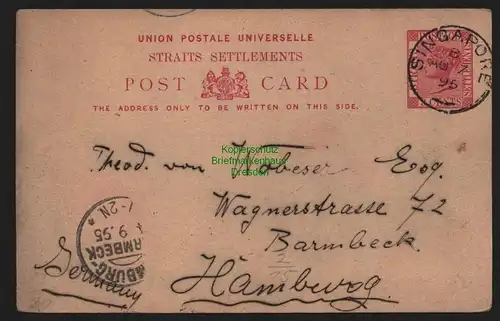 UNION POSTALE UNIVERSELLE
STRAITS SETTLEMENTS
POST CARD
THE ADDRESS ONLY TO BE WRITTEN ON THIS SIDE.
SINGAPORE
B
AU 7
95
Kopierschutz
Briefmarkenhaus
Dresden
Theod. von Wobeser Esq.
Wagnerstrasse 72
Barmbeck
Hamburg
Germany
BURG-
AMBECK
9.95
1-2N